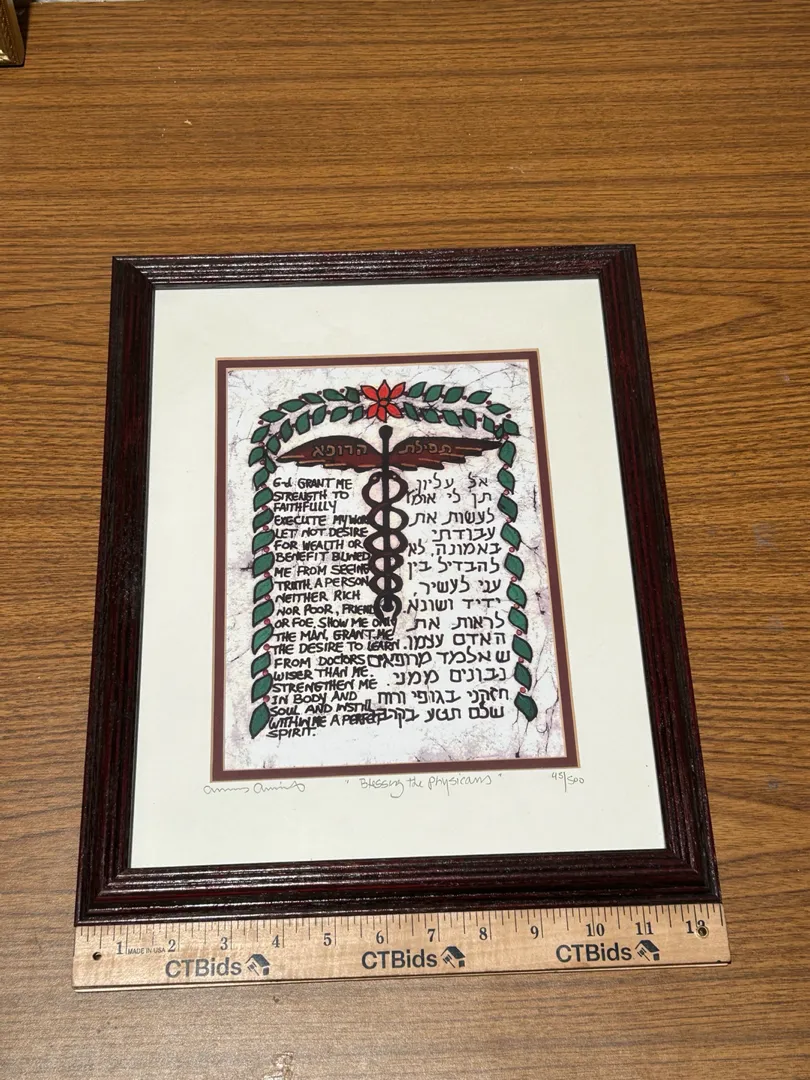 תפילת הרופא
G-d GRANT ME
STRENGTH TO
FAITHFULLY
EXECUTE MY WORK
LET NOT DESIRE
FOR WEALTH OR
BENEFIT BLIND
ME FROM SEEING
TRUTH. A PERSON
NEITHER RICH
NOR POOR, FRIEND
OR FOE, SHOW ME ONLY
THE MAN, GRANT ME
THE DESIRE TO LEARN
FROM DOCTORS
WISER THAN ME.
STRENGTHEN ME
IN BODY AND
SOUL AND INSTILL
WITHIN ME A PERFECT
SPIRIT.
אל עליון,
תן לי אומץ
לעשות את
עבודתי
באמונה, לא
להבדיל בין
עני לעשיר,
ידיד ושונא,
לראות את
האדם עצמו.
שאלמד מרופאים
נבונים ממני.
חזקני בגופי ורוח
שלם תטע בקרבי
"Blessing the Physicans"
45/500
1 MADE IN USA 2 3 4 5 6 7 8 9 10 11 12
CTBids CTBids CTBids